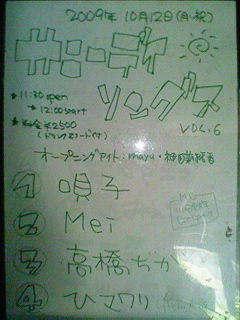 2009年 10月12日(月・祝)
サニーデイ
ソングス
VOL.6
→ 11:30 open
→ 12:00 start
→ 料金 ¥2500
オープニングアクト:mayu・神田
① 唄子
② Mei
③ 高橋ちか
④ ヒマワリ